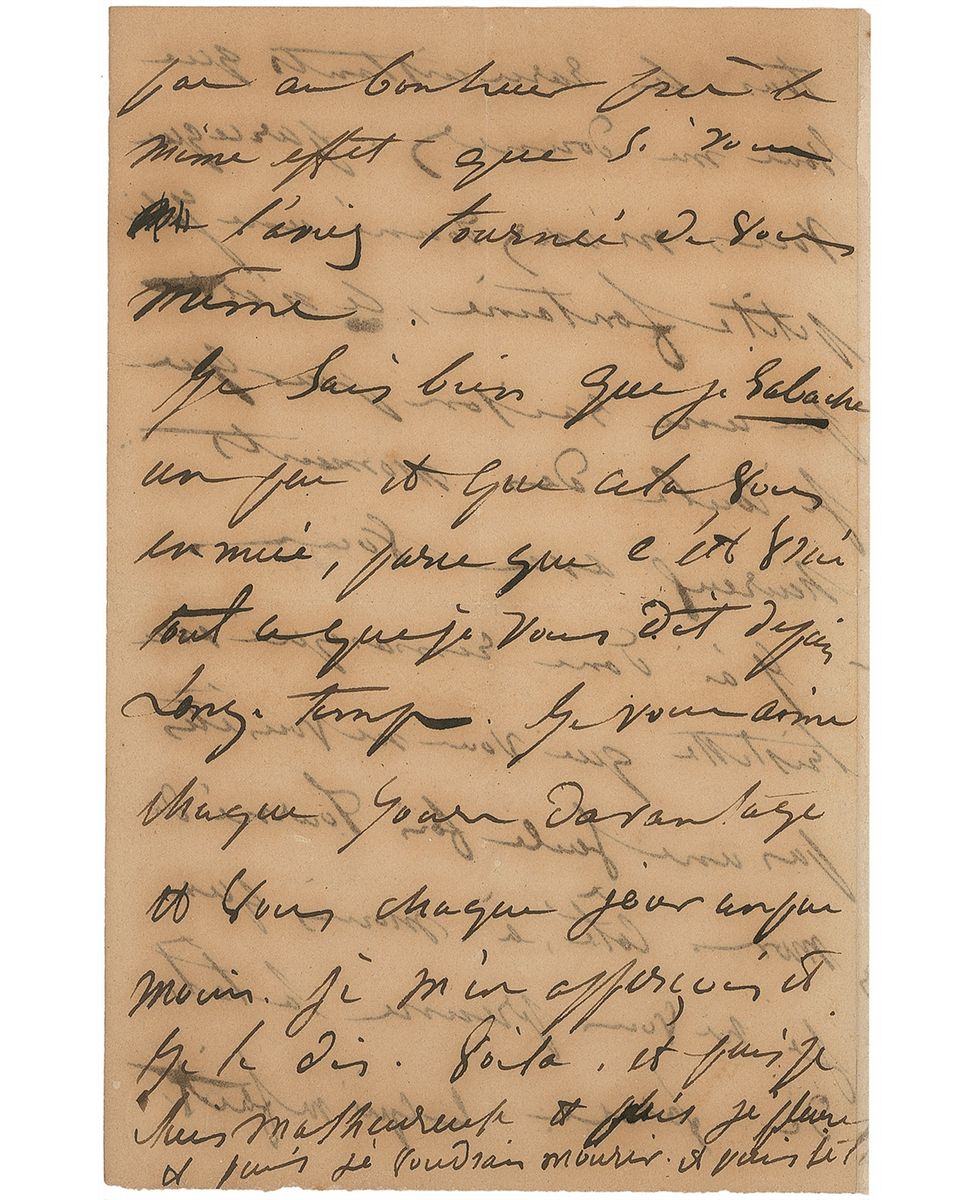 par un bonheur fait le
même effet que si vous
l'aviez tournée de vous
même.
Je sais bien que je rabache
un peu et que cela vous
ennuié, parce que c'est vrai
tout ce que je vous dit depuis
Longtemp. Je vous aime
chaque jour davantage
et vous chaque jour un peu
moins. je m'en apperçois et
je le dis. Voila. et puis je
suis malheureuse et puis je pleure
et puis je voudrais mourir. et puis